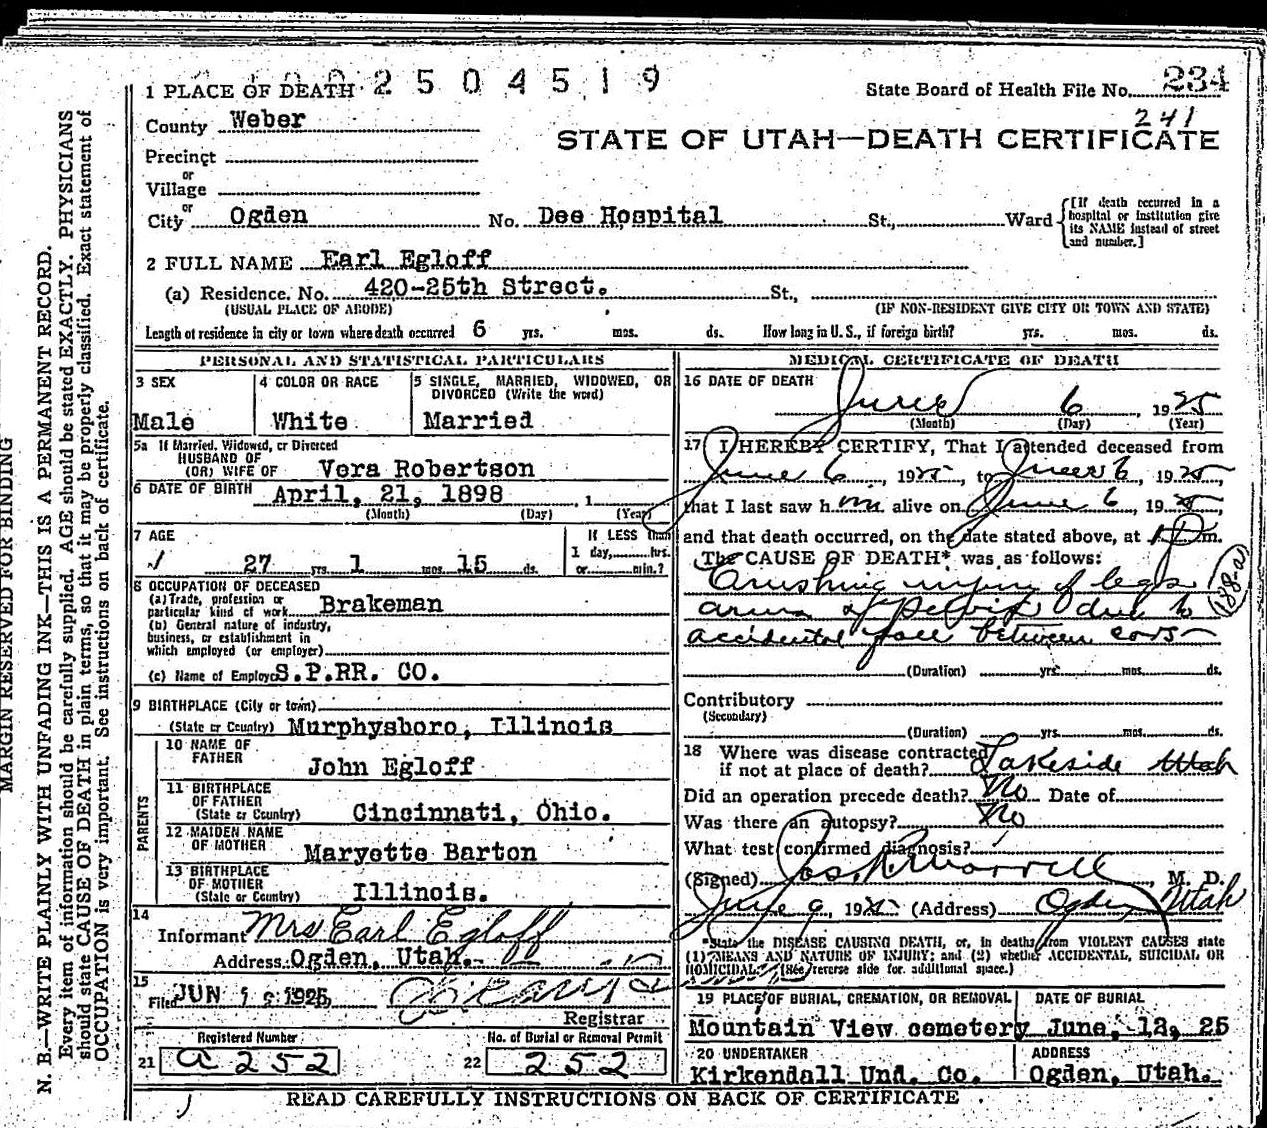 2504519
1 PLACE OF DEATH
State Board of Health File No. 234
241
County Weber
STATE OF UTAH—DEATH CERTIFICATE
Precinct
or
Village
or
City Ogden No. Dee Hospital St., Ward
[If death occurred in a hospital or institution give its NAME instead of street and number.]
2 FULL NAME Earl Egloff
(a) Residence. No. 420-25th Street. St.,
(USUAL PLACE OF ABODE) (IF NON-RESIDENT GIVE CITY OR TOWN AND STATE)
Length of residence in city or town where death occurred 6 yrs. mos. ds. How long in U. S., if foreign birth? yrs. mos. ds.
PERSONAL AND STATISTICAL PARTICULARS
3 SEX
Male
4 COLOR OR RACE
White
5 SINGLE, MARRIED, WIDOWED, OR DIVORCED (Write the word)
Married
5a If Married, Widowed, or Divorced
HUSBAND OF
(OR) WIFE OF Vera Robertson
6 DATE OF BIRTH April, 21, 1898 , 1
(Month) (Day) (Year)
7 AGE
27 yrs. 1 mos. 15 ds.
If LESS than
1 day, hrs.
or min.?
8 OCCUPATION OF DECEASED
(a) Trade, profession or
particular kind of work Brakeman
(b) General nature of industry,
business, or establishment in
which employed (or employer)
(c) Name of Employer S.P.RR. CO.
9 BIRTHPLACE (City or town)
(State or Country) Murphysboro, Illinois
PARENTS
10 NAME OF
FATHER
John Egloff
11 BIRTHPLACE
OF FATHER
(State or Country) Cincinnati, Ohio.
12 MAIDEN NAME
OF MOTHER
Maryette Barton
13 BIRTHPLACE
OF MOTHER
(State or Country) Illinois.
14
Informant Mrs Earl Egloff
Address Ogden, Utah.
15
Filed JUN 1925
Registrar
Registered Number
21 a252
No. of Burial or Removal Permit
22 252
MEDICAL CERTIFICATE OF DEATH
16 DATE OF DEATH
June 6, 1925
(Month) (Day) (Year)
17 I HEREBY CERTIFY, That I attended deceased from
June 6, 1925, to June 6, 1925,
that I last saw him alive on June 6, 1925,
and that death occurred, on the date stated above, at 1 P m.
The CAUSE OF DEATH* was as follows:
Crushing injury of legs
arms & pelvis due to
accidental fall between cars
188-a
(Duration) yrs. mos. ds.
Contributory
(Secondary)
(Duration) yrs. mos. ds.
18 Where was disease contracted
if not at place of death? Lakeside Utah
Did an operation precede death? No Date of
Was there an autopsy? No
What test confirmed diagnosis?
(Signed) Jos. R. Morrell, M. D.
June 9, 1925 (Address) Ogden Utah
*State the DISEASE CAUSING DEATH, or, in deaths from VIOLENT CAUSES state
(1) MEANS AND NATURE OF INJURY; and (2) whether ACCIDENTAL, SUICIDAL OR
HOMICIDAL. (See reverse side for additional space.)
19 PLACE OF BURIAL, CREMATION, OR REMOVAL
Mountain View cemetery
DATE OF BURIAL
June, 12, 25
20 UNDERTAKER
Kirkendall Und. Co.
ADDRESS
Ogden, Utah.
READ CAREFULLY INSTRUCTIONS ON BACK OF CERTIFICATE
MARGIN RESERVED FOR BINDING
N. B.—WRITE PLAINLY WITH UNFADING INK—THIS IS A PERMANENT RECORD.
Every item of information should be carefully supplied. AGE should be stated EXACTLY. PHYSICIANS
should state CAUSE OF DEATH in plain terms, so that it may be properly classified. Exact statement of
OCCUPATION is very important. See instructions on back of certificate.